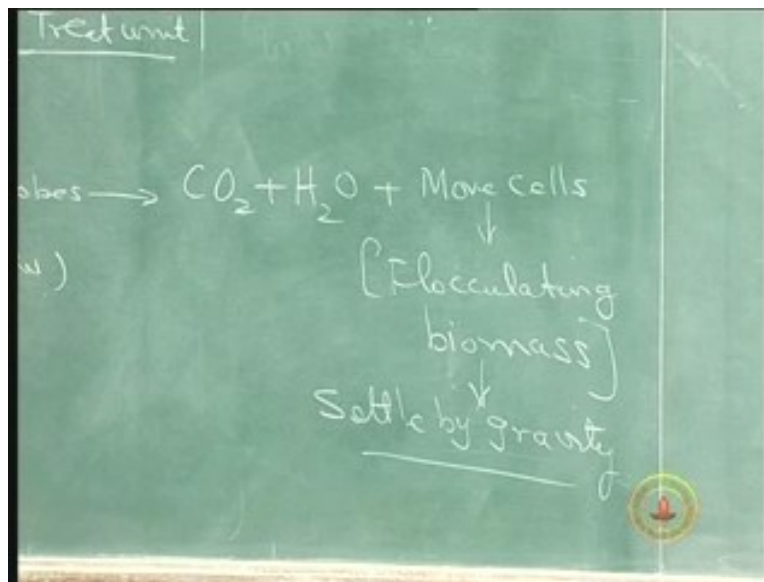 Treat unit
obes → CO₂ + H₂O + More cells
↓
w)
[Flocculating
biomass]
↓
Settle by gravity